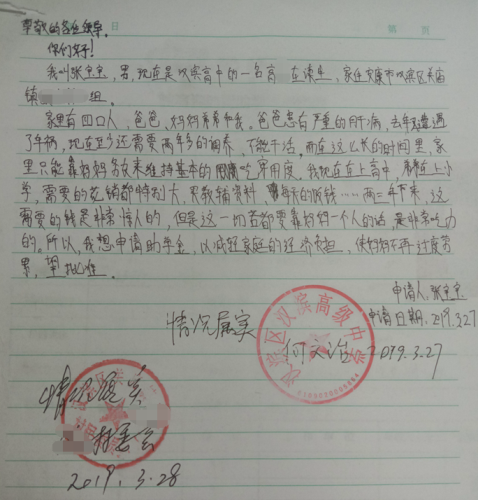 日 第 页
尊敬的各位领导.
你们好!
我叫张宝宝,男,现在是汉滨高中的一名高 在读生,家住安康市汉滨区
镇 组.
家里有四口人,爸爸、妈妈 和我。爸爸患有严重的肝病,去年 遭遇
了车祸,现在至少还需要两年多的调养,不能干活.而在这么长的时间里,家
里只能靠妈妈 来维持基本的 吃穿用度,我现在在上高中, 在上小
学,需要的花销都特别大,买教辅资料, 每天的饭钱……两三年下来,这
需要的钱是非常惊人的,但是这一切若都要靠妈妈一个人的话,是非常吃力
的。所以,我想申请助学金,以减轻家庭的经济负担,使妈妈不再过度劳
累,望批准。
申请人:张宝宝
申请日期:2019.3.27
情况属实
汉滨区汉滨高级中学
何文治 2019.3.27
情况属实
村委会
2019.3.28